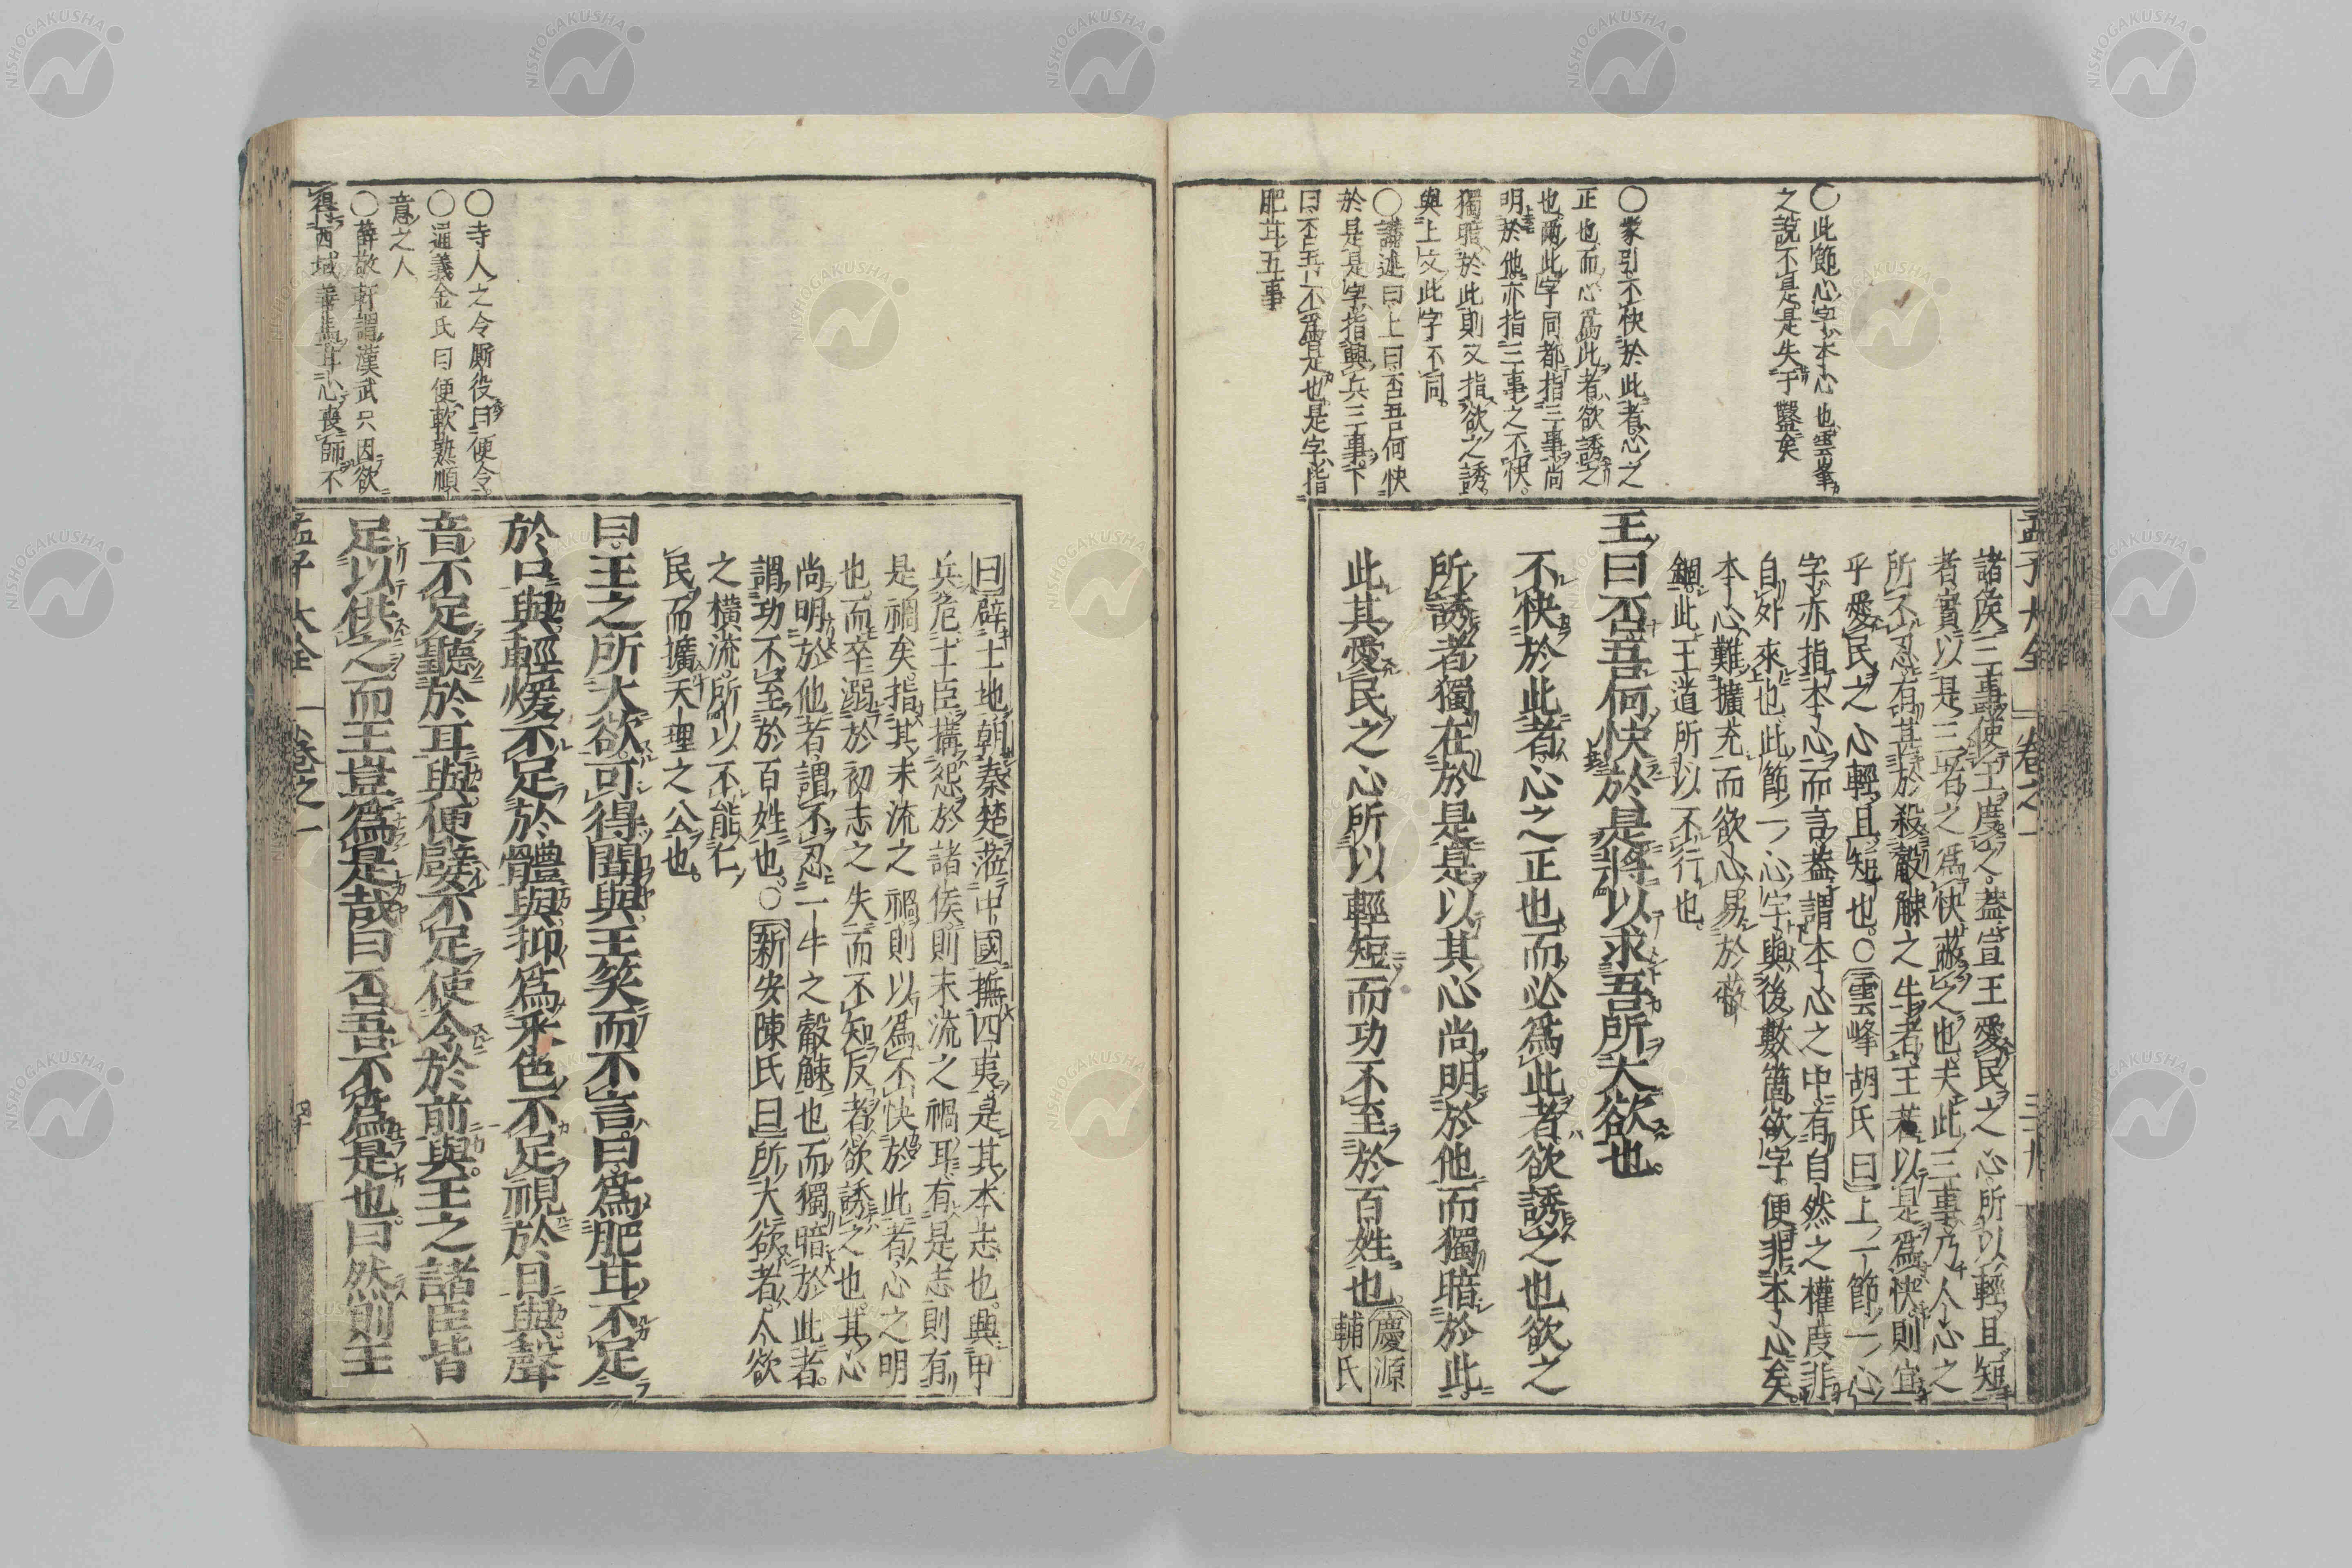 孟子大全 卷之一
○此節心字本心也雲峯
之說不宜是失于鑿矣
○蒙引不快於此者心之
正也而心爲此者欲誘之
也兩此字同都指三事尚
明於他亦指三事之不快
獨暗於此則又指欲之誘
與上文此字不同
○講述曰上曰否吾何快
於是是字指興兵三事下
曰否吾不爲是也是字指
肥甘五事
諸侯三事使王度之蓋宣王愛民之心所以輕且短
者實以是三者之爲快蔽之也夫此三事乃人心之
所不忍有甚於殺觳觫之牛者王若以是爲快則宜
乎愛民之心輕且短也○雲峰胡氏曰上一節一心
字亦指本心而言蓋謂本心之中有自然之權度非
自外來也此節一心字與後數箇欲字便非本心矣
本心難擴充而欲心易於蔽
錮此王道所以不行也
王曰否吾何快於是將以求吾所大欲也
不快於此者心之正也而必爲此者欲誘之也欲之
所誘者獨在於是是以其心尚明於他而獨暗於此
此其愛民之心所以輕短而功不至於百姓也慶源
輔氏
曰辟土地朝秦楚蒞中國撫四夷是其本志也興甲
兵危士臣搆怨於諸侯則末流之禍耳有是志則有
是禍矣指其末流之禍則以爲不快於此者心之明
也而卒溺於初志之失而不知反者欲誘之也其心
尚明於他者謂不忍一牛之觳觫也而獨暗於此者
謂功不至於百姓也○新安陳氏曰所大欲者人欲
之橫流所以不能仁
民而擴天理之公也
曰王之所大欲可得聞與王笑而不言曰爲肥甘不足
於口與輕煖不足於體與抑爲采色不足視於目與聲
音不足聽於耳與便嬖不足使令於前與王之諸臣皆
足以供之而王豈爲是哉曰否吾不爲是也曰然則王
○寺人之令厮役曰便令
○通義金氏曰便軟熟順
意之人
○薛敬軒謂漢武只因欲
得西域善馬耳心喪師不
孟子大全 卷之一